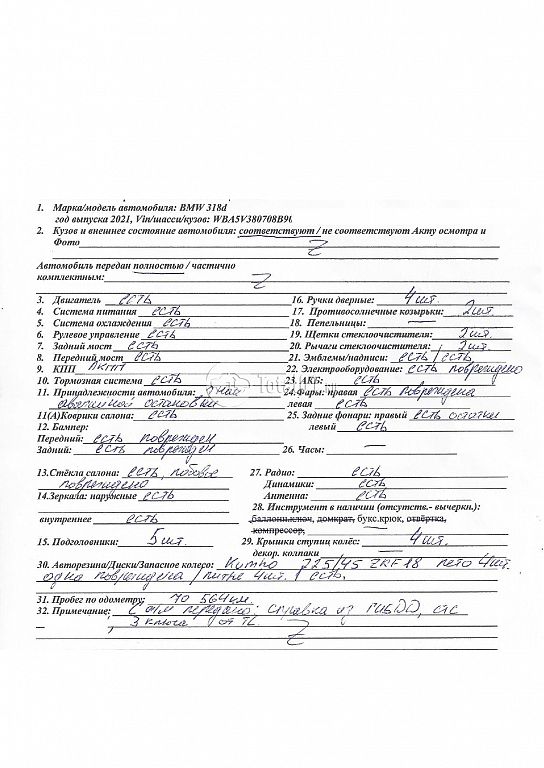 1. Марка/модель автомобиля: BMW 318d
год выпуска 2021, Vin/шасси/кузов: WBA5V380708B90
2. Кузов и внешнее состояние автомобиля: соответствуют / не соответствуют Акту осмотра и
Фото Z
Автомобиль передан полностью / частично
комплектным: Z
3. Двигатель есть 16. Ручки дверные: 4 шт.
4. Система питания есть 17. Противосолнечные козырьки: 2 шт.
5. Система охлаждения есть 18. Пепельницы: —
6. Рулевое управление есть 19. Щетки стеклоочистителя: 2 шт.
7. Задний мост есть 20. Рычаги стеклоочистителя: 2 шт.
8. Передний мост есть 21. Эмблемы/надписи: есть / есть
9. КПП АКПП 22. Электрооборудование: есть повреждено
10. Тормозная система есть 23. АКБ: есть
11. Принадлежности автомобиля: знак 24. Фары: правая есть повреждена
аварийной остановки левая есть
11(А)Коврики салона: есть 25. Задние фонари: правый есть остатки
12. Бампер: левый есть
Передний: есть поврежден
Задний: есть поврежден 26. Часы: —
13.Стёкла салона: есть, лобовое 27. Радио: есть
повреждено Динамики: есть
14.Зеркала: наружные есть Антенна: есть
28. Инструмент в наличии (отсутств.- вычеркн.):
внутреннее есть баллонн.ключ, домкрат, букс.крюк, отвёртка,
компрессор,
15. Подголовники: 5 шт. 29. Крышки ступиц колёс: 4 шт.
декор. колпаки —
30. Авторезина/Диски/Запасное колесо: Kumho 225/45 ZRF18 лето 4 шт.
одна повреждена / литые 4 шт. / есть.
31. Пробег по одометру: 70 564 км.
32. Примечание: С а/м передано: справка из ГИБДД, стс
, 3 ключа от ТС. Z